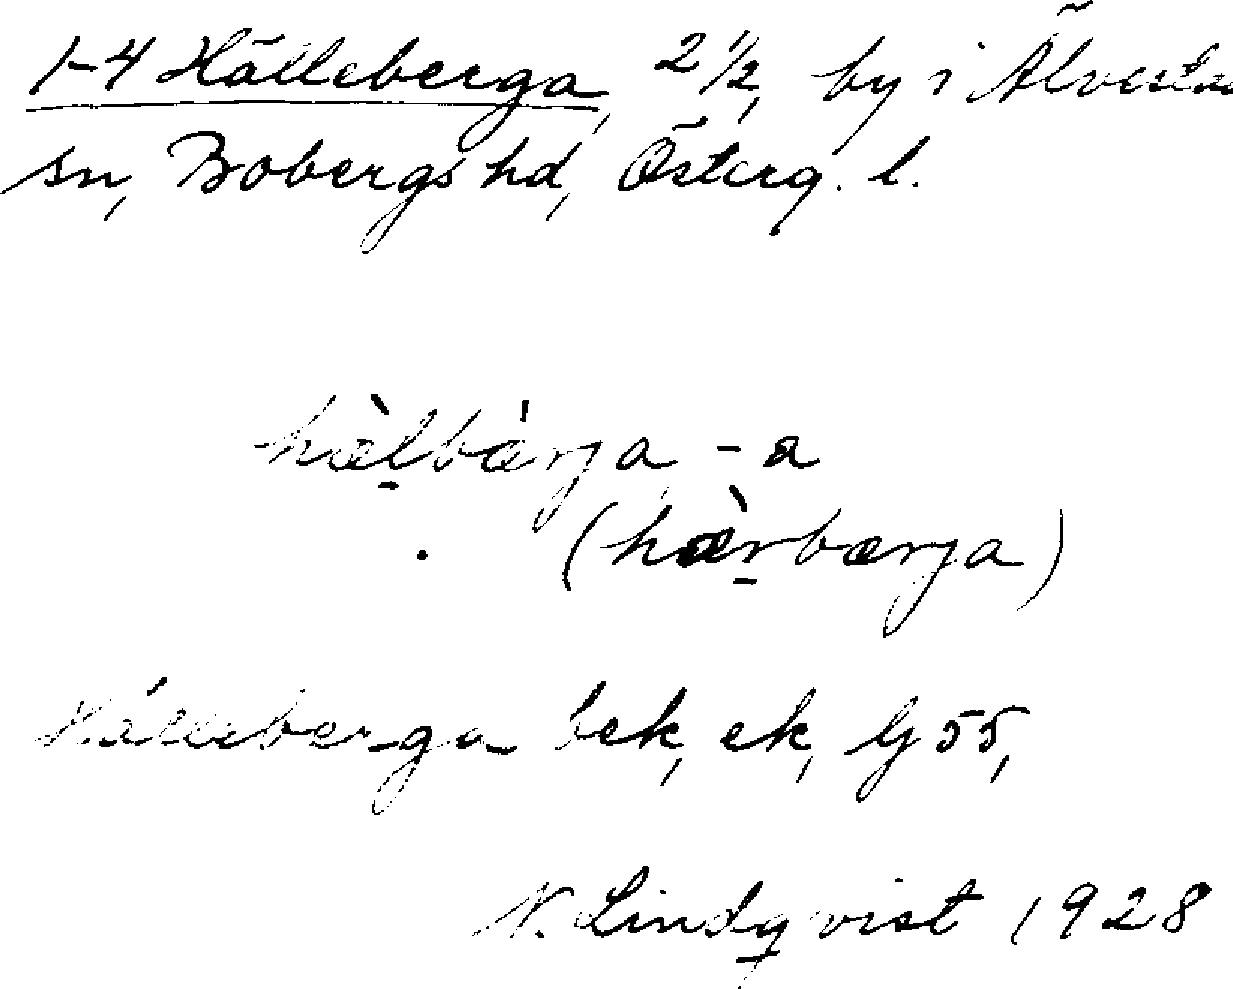 1-4 Hälleberga, 2 1/2, by i Älvestad
sn, Bobergs hd, Österg. l.
hæ̀lbàrja, -a
(hæ̀rbærja)
Hälleberga bek, ek, Gj 55,
N. Lindqvist 1928